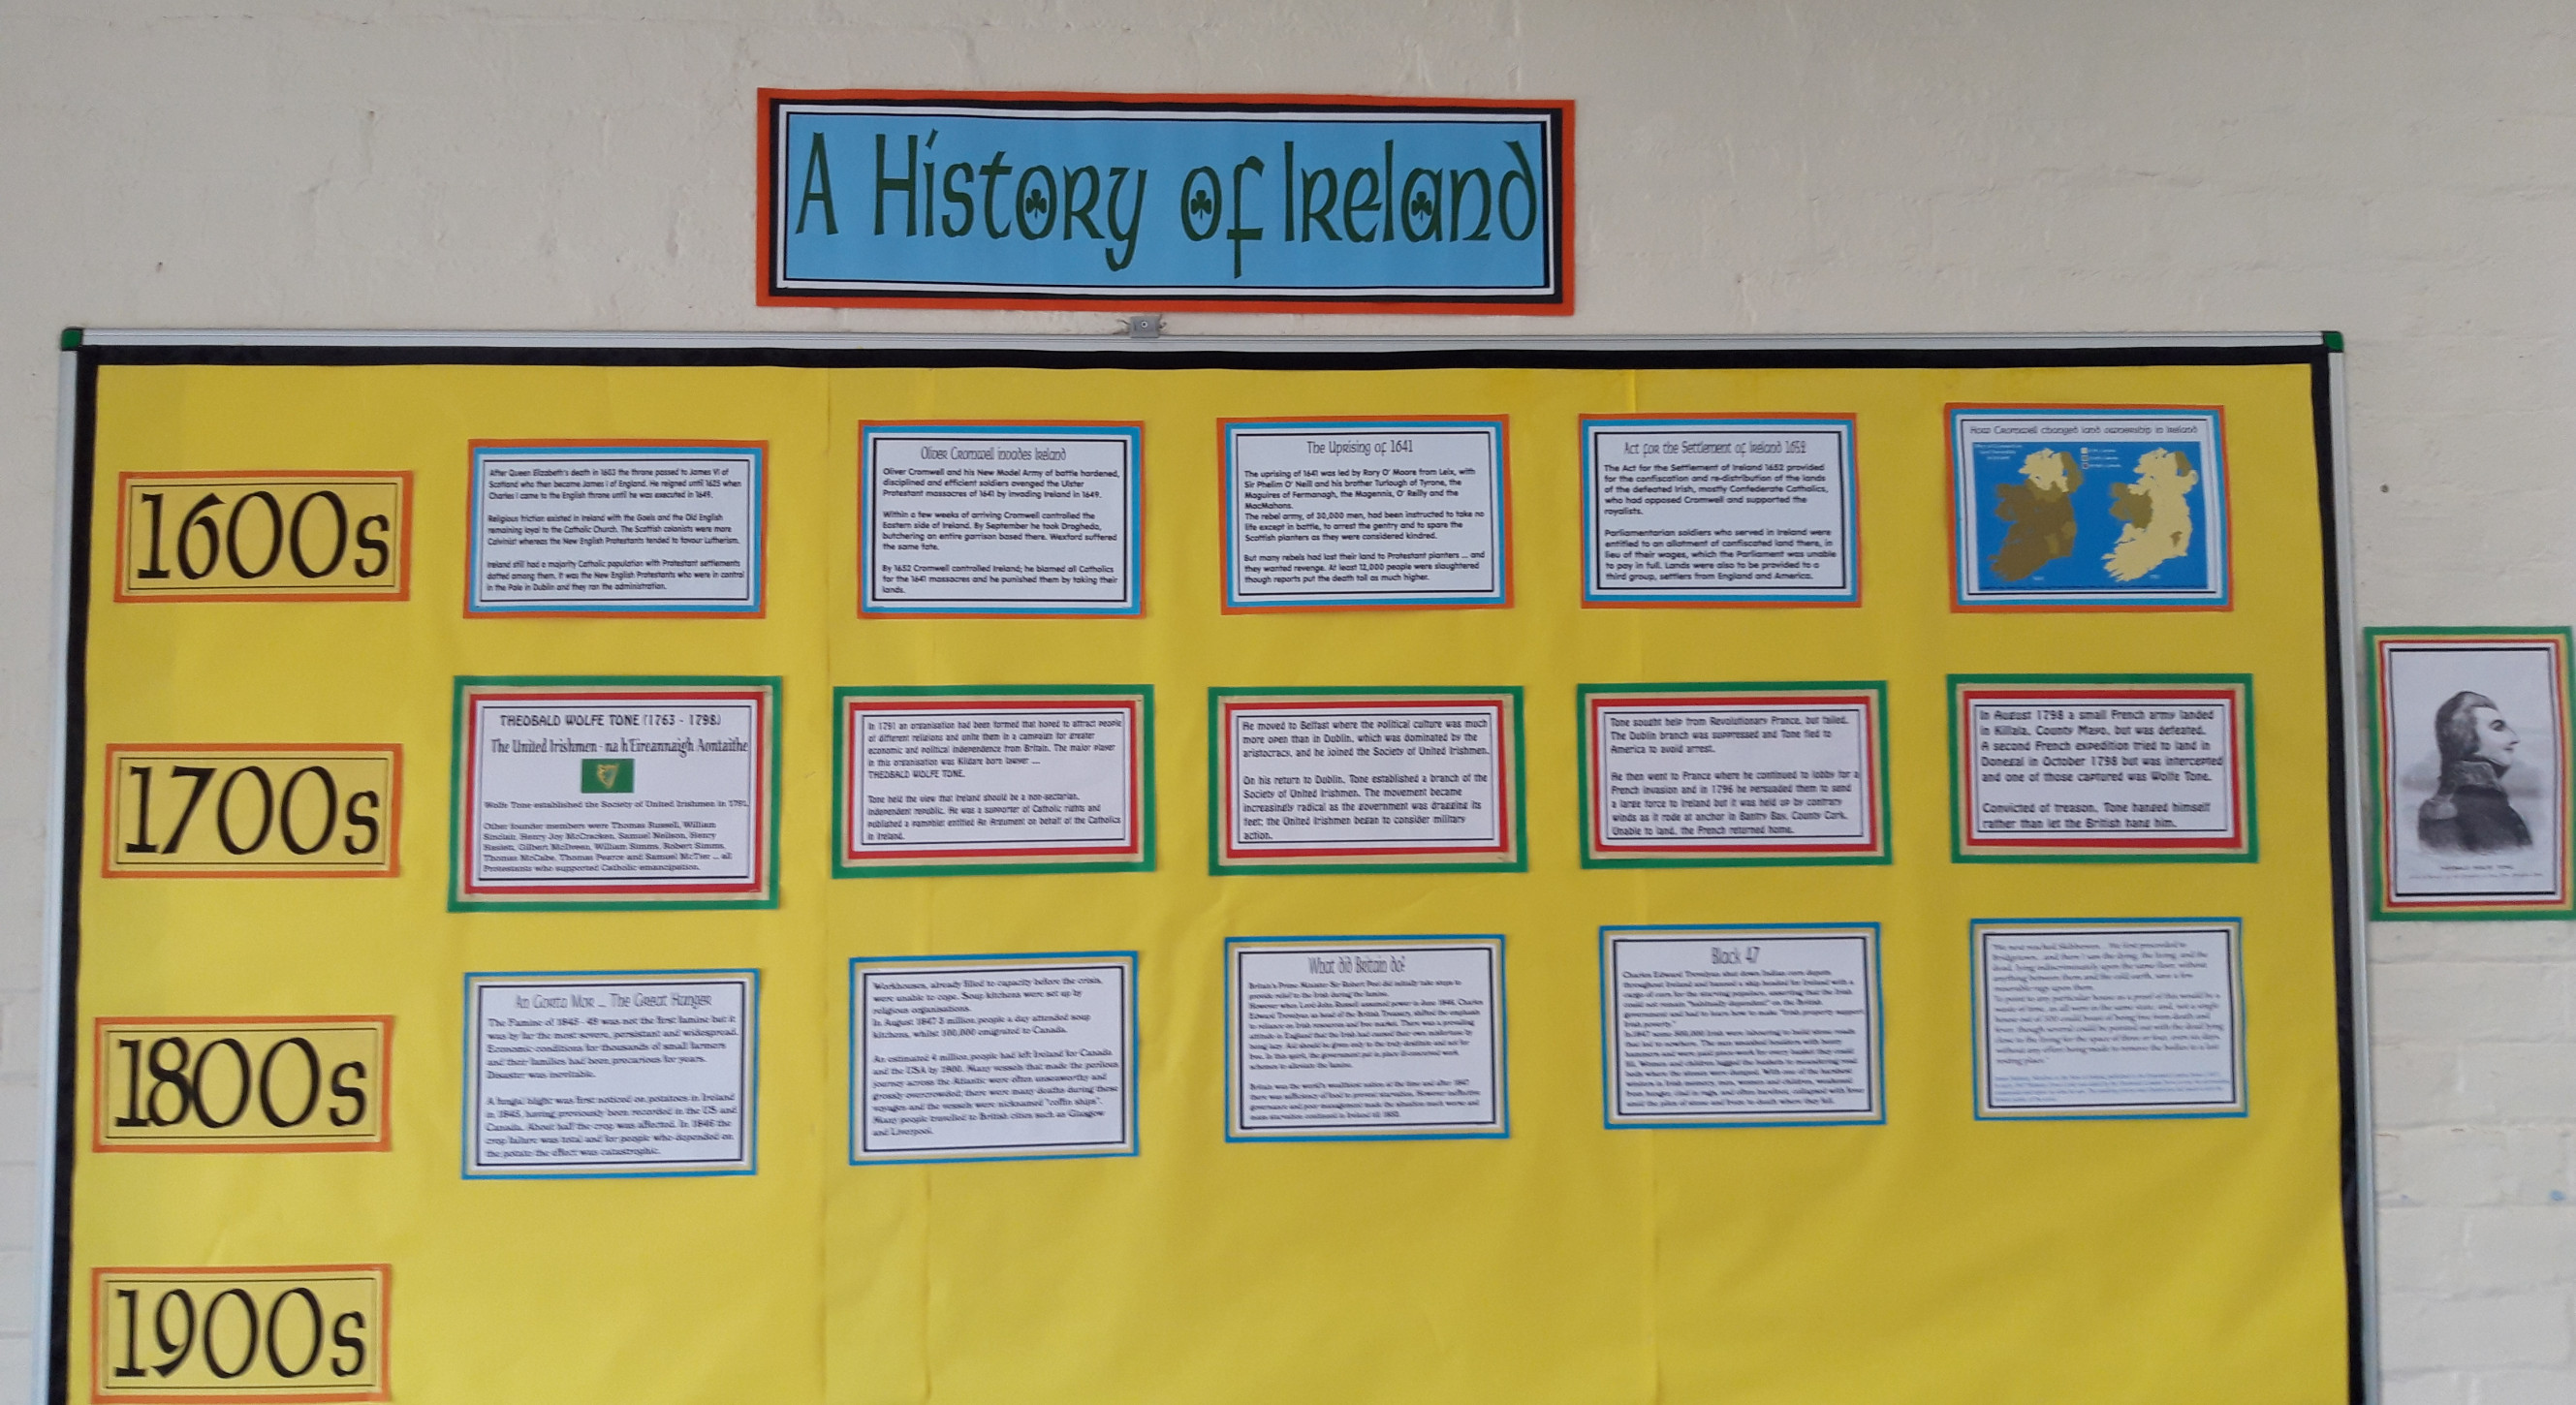 A History of Ireland
1600s
After Queen Elizabeth's death in 1603 the throne passed to James VI of
Scotland who then became James I of England. He reigned until 1625 when
Charles I came to the English throne until he was executed in 1649.
Religious friction existed in Ireland with the Gaels and the Old English
remaining loyal to the Catholic Church. The Scottish colonists were more
Calvinist whereas the New English Protestants tended to favour Lutherism.
Ireland still had a majority Catholic population with Protestant settlements
dotted among them. It was the New English Protestants who were in control
in the Pale in Dublin and they ran the administration.
Oliver Cromwell invades Ireland
Oliver Cromwell and his New Model Army of battle hardened,
disciplined and efficient soldiers avenged the Ulster
Protestant massacres of 1641 by invading Ireland in 1649.
Within a few weeks of arriving Cromwell controlled the
Eastern side of Ireland. By September he took Drogheda,
butchering an entire garrison based there. Wexford suffered
the same fate.
By 1652 Cromwell controlled Ireland; he blamed all Catholics
for the 1641 massacres and he punished them by taking their
lands.
The Uprising of 1641
The uprising of 1641 was led by Rory O' Moore from Leix, with
Sir Phelim O' Neill and his brother Turlough of Tyrone, the
Maguires of Fermanagh, the Magennis, O' Reilly and the
MacMahons.
The rebel army, of 30,000 men, had been instructed to take no
life except in battle, to arrest the gentry and to spare the
Scottish planters as they were considered kindred.
But many rebels had lost their land to Protestant planters ... and
they wanted revenge. At least 12,000 people were slaughtered
though reports put the death toll as much higher.
Act for the Settlement of Ireland 1652
The Act for the Settlement of Ireland 1652 provided
for the confiscation and re-distribution of the lands
of the defeated Irish, mostly Confederate Catholics,
who had opposed Cromwell and supported the
royalists.
Parliamentarian soldiers who served in Ireland were
entitled to an allotment of confiscated land there, in
lieu of their wages, which the Parliament was unable
to pay in full. Lands were also to be provided to a
third group, settlers from England and America.
How Cromwell changed land ownership in Ireland
1700s
THEOBALD WOLFE TONE (1763 - 1798)
The United Irishmen - na h'Eireannaigh Aontaithe
Wolfe Tone established the Society of United Irishmen in 1791.
Other founder members were Thomas Russell, William
Sinclair, Henry Joy McCracken, Samuel Neilson, Henry
Haslett, Gilbert McIlveen, William Simms, Robert Simms,
Thomas McCabe, Thomas Pearce and Samuel McTier ... all
Protestants who supported Catholic emancipation.
In 1791 an organisation had been formed that hoped to attract people
of different religions and unite them in a campaign for greater
economic and political independence from Britain. The major player
in this organisation was Kildare born lawyer ...
THEOBALD WOLFE TONE.
Tone held the view that Ireland should be a non-sectarian,
independent republic. He was a supporter of Catholic rights and
published a pamphlet entitled An Argument on behalf of the Catholics
in Ireland.
He moved to Belfast where the political culture was much
more open than in Dublin, which was dominated by the
aristocracy, and he joined the Society of United Irishmen.
On his return to Dublin, Tone established a branch of the
Society of United Irishmen. The movement became
increasingly radical as the government was dragging its
feet; the United Irishmen began to consider military
action.
Tone sought help from Revolutionary France, but failed.
The Dublin branch was suppressed and Tone fled to
America to avoid arrest.
He then went to France where he continued to lobby for a
French invasion and in 1796 he persuaded them to send
a large force to Ireland but it was held up by contrary
winds as it rode at anchor in Bantry Bay, County Cork.
Unable to land, the French returned home.
In August 1798 a small French army landed
in Killala, County Mayo, but was defeated.
A second French expedition tried to land in
Donegal in October 1798 but was intercepted
and one of those captured was Wolfe Tone.
Convicted of treason, Tone hanged himself
rather than let the British hang him.
1800s
An Gorta Mor ... The Great Hunger
The Famine of 1845 - 49 was not the first famine but it
was by far the most severe, persistent and widespread.
Economic conditions for thousands of small farmers
and their families had been precarious for years.
Disaster was inevitable.
A fungal blight was first noticed on potatoes in Ireland
in 1845, having previously been recorded in the US and
Canada. About half the crop was affected. In 1846 the
crop failure was total and for people who depended on
the potato the effect was catastrophic.
Workhouses, already filled to capacity before the crisis,
were unable to cope. Soup kitchens were set up by
religious organisations.
In August 1847 3 million people a day attended soup
kitchens, whilst 100,000 emigrated to Canada.
An estimated 4 million people had left Ireland for Canada
and the USA by 1900. Many vessels that made the perilous
journey across the Atlantic were often unseaworthy and
grossly overcrowded; there were many deaths during these
voyages and the vessels were nicknamed "coffin ships".
Many people travelled to British cities such as Glasgow
and Liverpool.
What did Britain do?
Britain's Prime Minister Sir Robert Peel did initially take steps to
provide relief to the Irish during the famine.
However when Lord John Russell assumed power in June 1846, Charles
Edward Trevelyan as head of the British Treasury, shifted the emphasis
to reliance on Irish resources and free market. There was a prevailing
attitude in England that the Irish had caused their own misfortune by
being lazy. Aid should be given only to the truly destitute and not for
Black 47
Charles Edward Trevelyan shut down Indian corn depots
throughout Ireland and banned a ship headed for Ireland with a
cargo of corn for the starving populace, asserting that the Irish
could not remain "habitually dependent" on the British
government and had to learn how to make "Irish property support
Irish poverty."
1900s